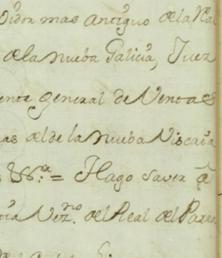 Oidor mas Antiguo de la Real
de la nueba Galicia, Juez
ente General de Ventas
as de la nueba Viscaia
Hago saver à
Vez.no del Real del Parral